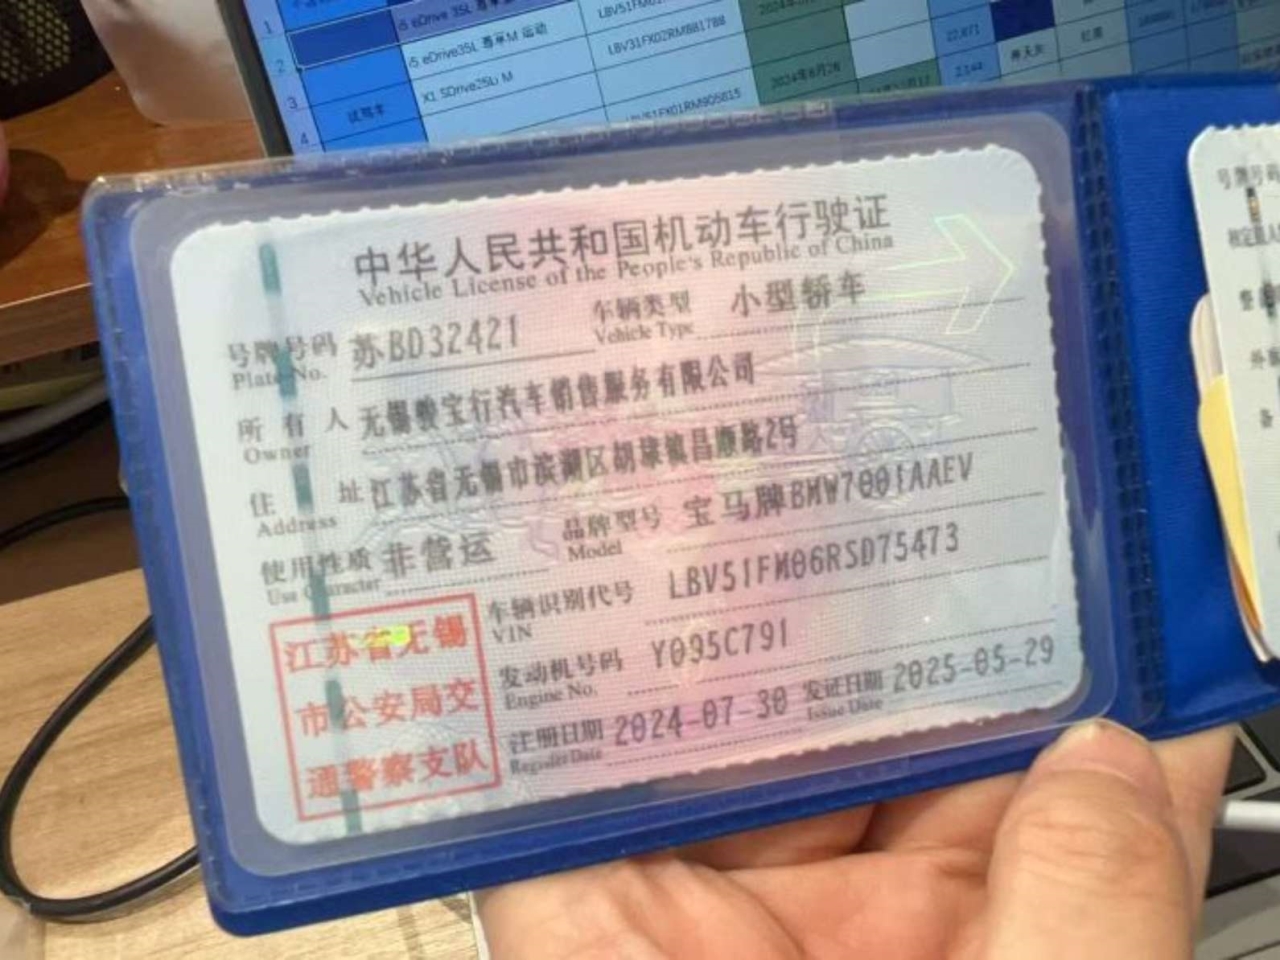 i5 eDrive 35L 尊享
i5 eDrive35L 尊享M 运动
LBV31FX02RM881788
2024年6月28
X1 SDrive25Li M
试驾车
LBV51FX01RM905815
1
2
3
4
中华人民共和国机动车行驶证
Vehicle License of the People's Republic of China
号牌号码 苏BD32421 车辆类型 小型轿车
Plate No. Vehicle Type
所有人 无锡骏宝行汽车销售服务有限公司
Owner
住址 江苏省无锡市滨湖区胡埭镇昌顺路2号
Address
使用性质 非营运 品牌型号 宝马牌BMW7001AAEV
Use Character Model
车辆识别代号 LBV51FM06RSD75473
VIN
发动机号码 Y095C791
Engine No.
注册日期 2024-07-30 发证日期 2025-05-29
Register Date Issue Date
江苏省无锡
市公安局交
通警察支队
号牌号码
核定载人
整备
外廓
备